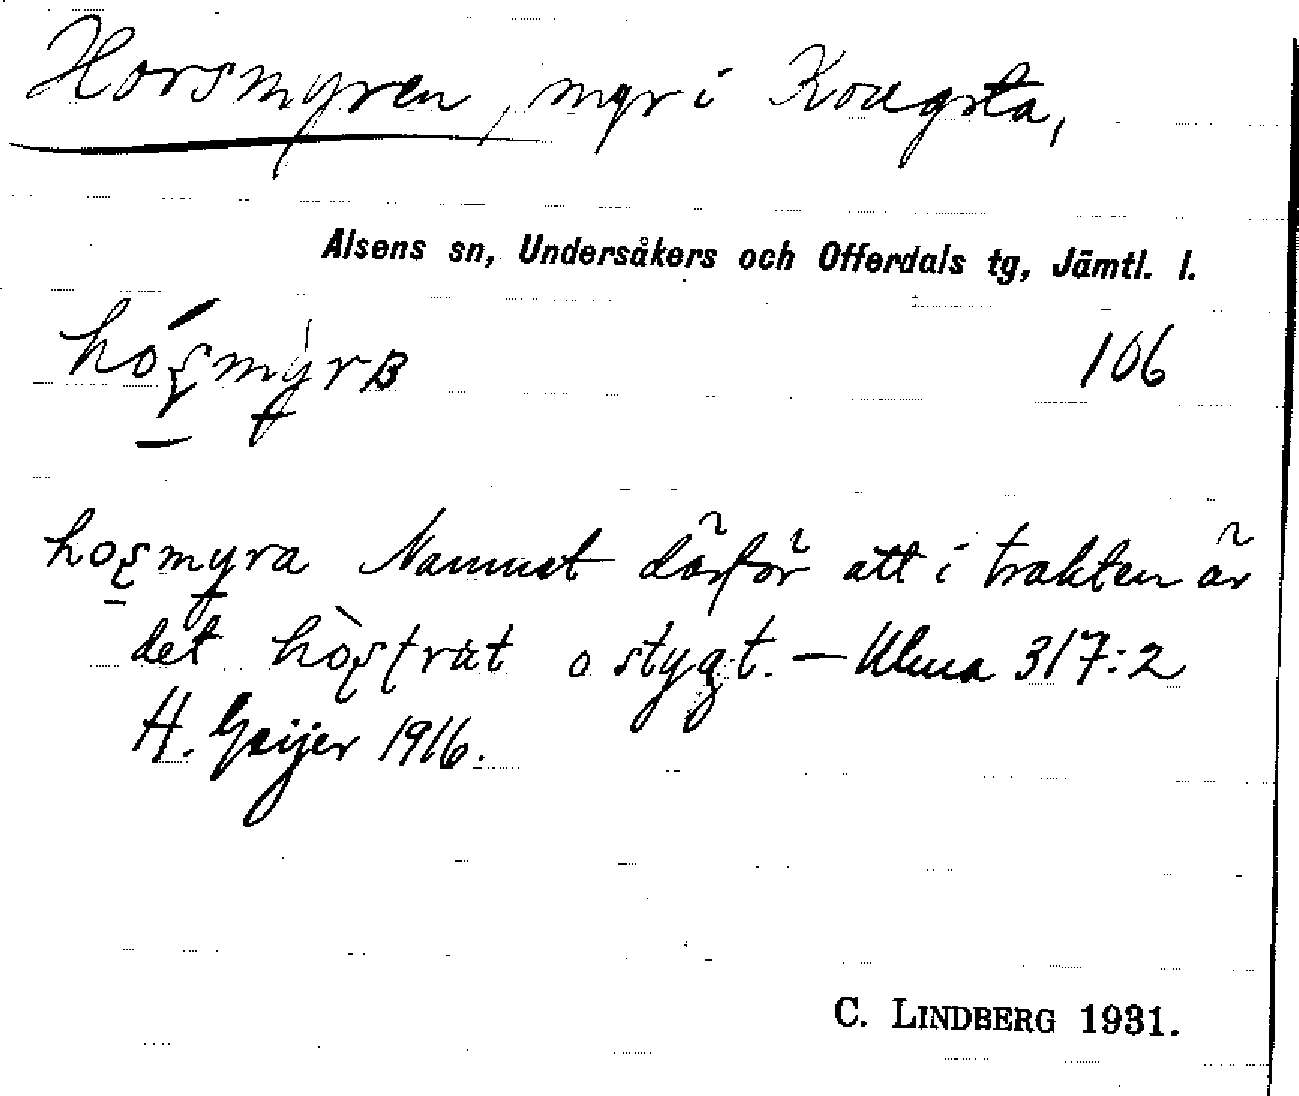 Horsmyren, myr i Kougsta,
Alsens sn, Undersåkers och Offerdals tg, Jämtl. l.
hoʂmyrɐ 106
hoʂmyra Namnet därför att i trakten är
det hòʂtrat o stygt. – Ulma 317:2
H. Geijer 1916.
C. LINDBERG 1931.